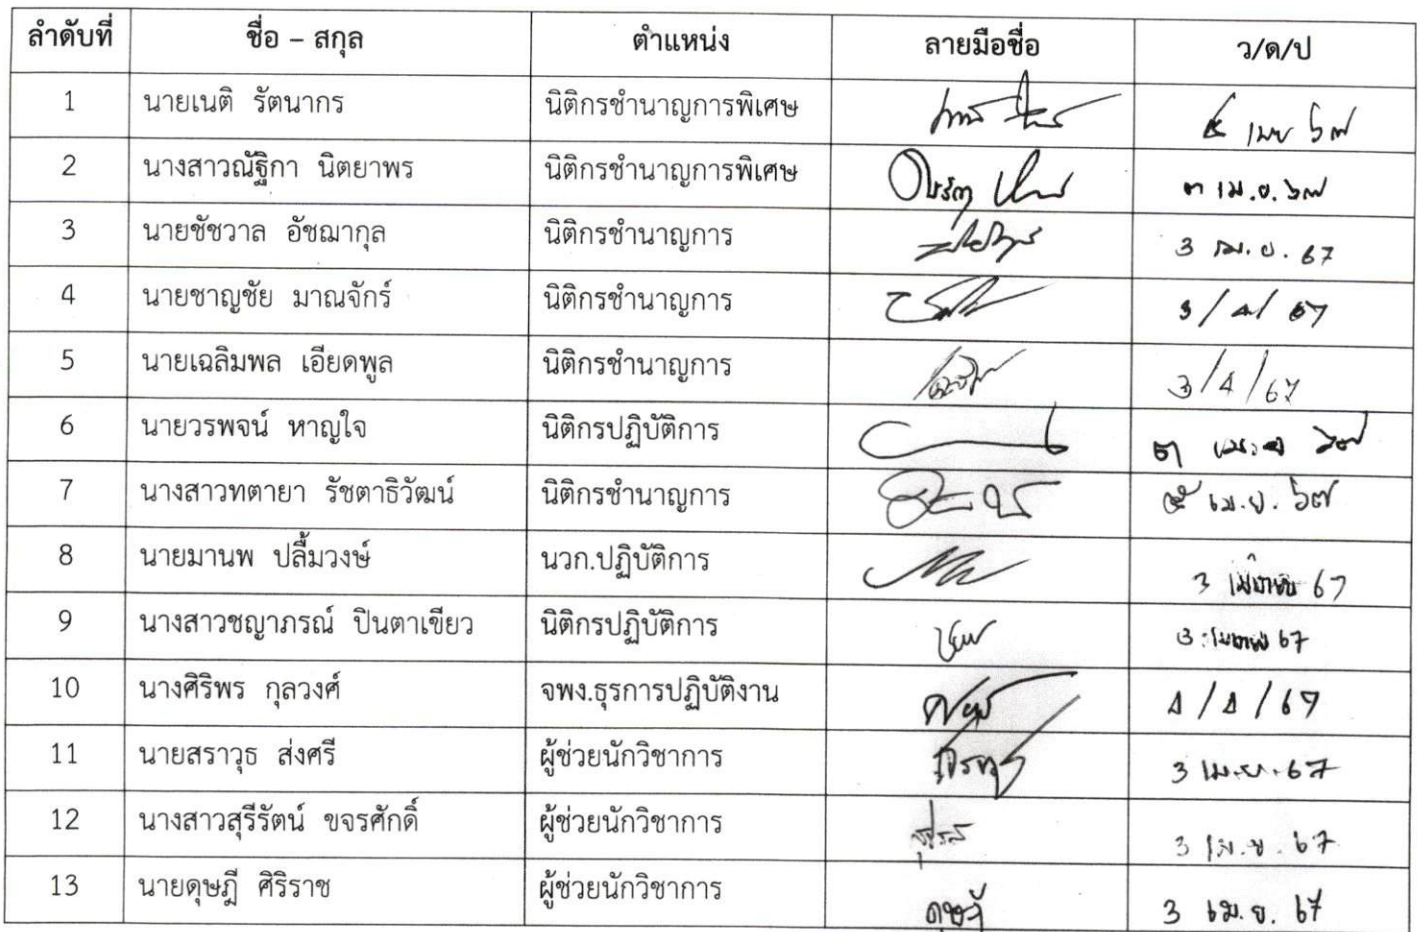 ลำดับที่ ชื่อ – สกุล ตำแหน่ง ลายมือชื่อ ว/ด/ป
1 นายเนติ รัตนากร นิติกรชำนาญการพิเศษ ๕ เมย ๖๗
2 นางสาวณัฐิกา นิตยาพร นิติกรชำนาญการพิเศษ ๓ เม.ย. ๖๗
3 นายชัชวาล อัชฌากุล นิติกรชำนาญการ 3 เม.ย. 67
4 นายชาญชัย มาณจักร์ นิติกรชำนาญการ 3/4/67
5 นายเฉลิมพล เอียดพูล นิติกรชำนาญการ 3/4/67
6 นายวรพจน์ หาญใจ นิติกรปฏิบัติการ ๓ ๖๗
7 นางสาวทตายา รัชตาธิวัฒน์ นิติกรชำนาญการ ๕ เม.ย. ๖๗
8 นายมานพ ปลื้มวงษ์ นวก.ปฏิบัติการ 3 เมษายน 67
9 นางสาวชญาภรณ์ ปินตาเขียว นิติกรปฏิบัติการ 3 เมษายน 67
10 นางศิริพร กุลวงศ์ จพง.ธุรการปฏิบัติงาน 4/4/67
11 นายสราวุธ ส่งศรี ผู้ช่วยนักวิชาการ 3 เม.ย. 67
12 นางสาวสุรีรัตน์ ขจรศักดิ์ ผู้ช่วยนักวิชาการ 3 เม.ย. 67
13 นายดุษฎี ศิริราช ผู้ช่วยนักวิชาการ ดุษฎี 3 เม.ย. 67